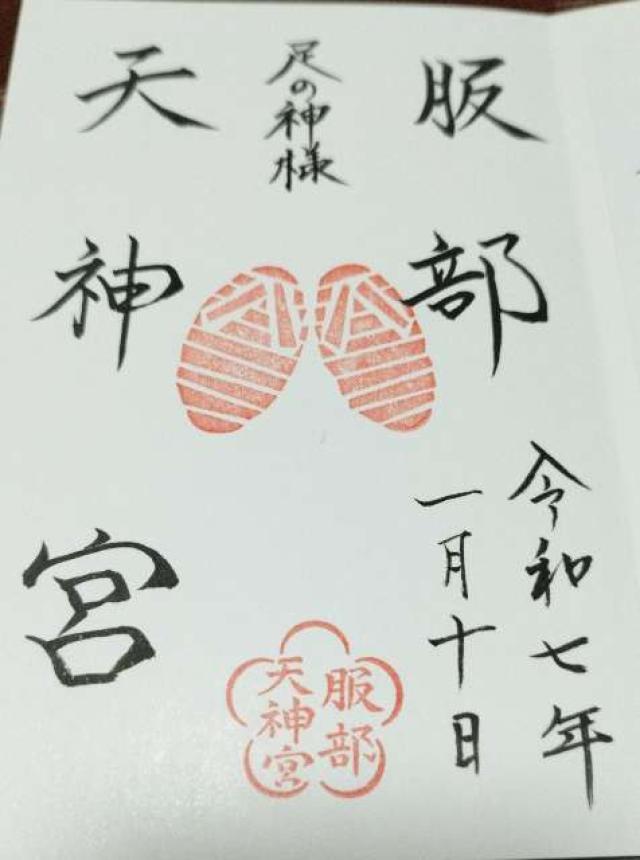 服部
足の神様
天神宮
令和七年
一月十日
服部
天神宮